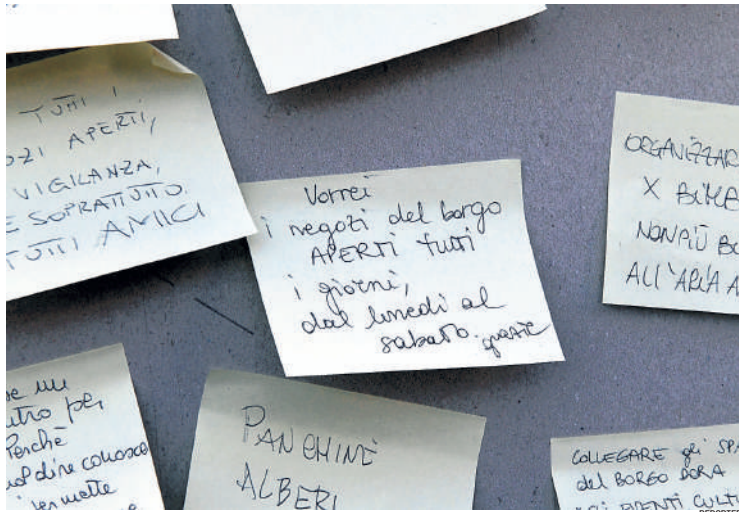 TUTTI I
OZI APERTI,
VIGILANZA,
E SOPRATTUTTO
TUTTI AMICI
Vorrei
i negozi del borgo
APERTI tutti
i giorni,
dal lunedì al
sabato. grazie
ORGANIZZAR
X BIMB
NON PIÙ BU
ALL'ARIA A
ne un
ntro per
Perchè
uol dire conosce
permette
PANCHINE
ALBERI
COLLEGARE gli SPA
del BORGO DORA
EVENTI CULTU
REPORTER